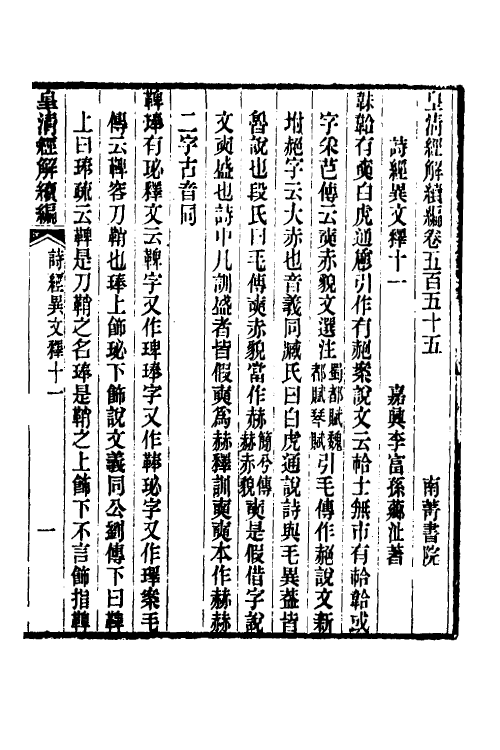 皇清經解續編卷五百五十五　南菁書院
詩經異文釋十一　嘉興李富孫薌沚著
韎韐有奭白虎通爵引作有赩案說文云袷士無市有袷韐或
字朵芑傳云奭赤貌文選注蜀都賦魏都賦琴賦引毛傳作赩說文新
坿赩字云大赤也音義同臧氏曰白虎通說詩與毛異葢皆
魯說也段氏曰毛傳奭赤貌當作赫簡兮傳赫赤貌奭是假借字說
文奭盛也詩中凡訓盛者皆假奭爲赫釋訓奭奭本作赫赫
二字古音同
鞞琫有珌釋文云鞞字又作琕琫字又作鞛珌字又作㻫案毛
傳云鞞容刀鞘也琫上飾珌下飾說文義同公劉傳下曰鞞
上曰琫疏云鞞是刀鞘之名琫是鞘之上飾下不言飾指鞞
皇清經解續編　詩經異文釋十一　一